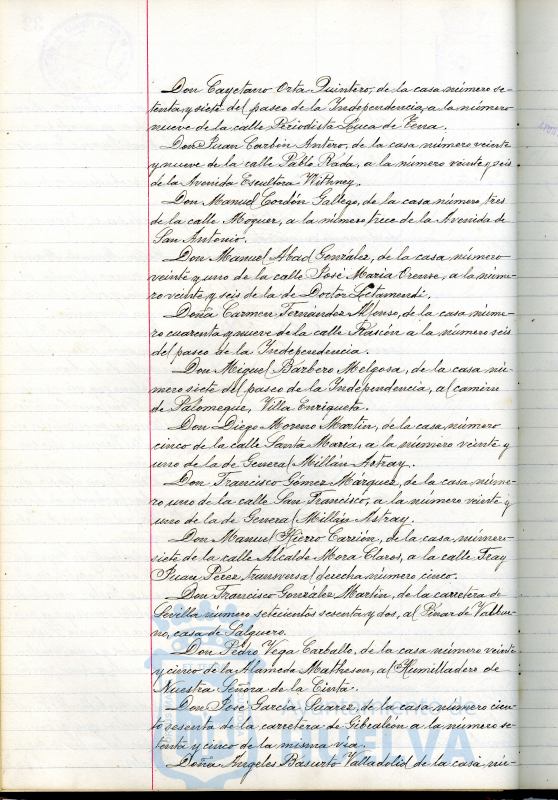 Don Cayetano Orta Quintero, de la casa número se-
tenta y siete del paseo de la Independencia, a la número
nueve de la calle Periodista Luca de Tena.
Don Juan Carbón Antero, de la casa número veinte
y nueve de la calle Pablo Rada, a la número veinte y seis
de la Avenida Escultora Withney.
Don Manuel Cordón Gallego, de la casa número tres
de la calle Moguer, a la número trece de la Avenida de
San Antonio.
Don Manuel Abad González, de la casa número
veinte y uno de la calle José María Orense, a la núme-
ro veinte y seis de la de Doctor Letamendi.
Doña Carmen Fernández Alonso, de la casa núme-
ro cuarenta y nueve de la calle Rascón a la número seis
del paseo de la Independencia.
Don Miguel Bárbero Melgosa, de la casa nú-
mero siete del paseo de la Independencia, al camino
de Palomeque, Villa Enriqueta.
Don Diego Moreno Martín, de la casa número
cinco de la calle Santa María, a la número veinte y
uno de la de General Millán Astray.
Don Francisco Gómez Márquez, de la casa núme-
ro uno de la calle San Francisco, a la número veinte y
uno de la de General Millán Astray.
Don Manuel Hierro Carrión, de la casa número
siete de la calle Alcalde Mora Claros, a la calle Fray
Juan Pérez, transversal derecha número cinco.
Don Francisco González Martín, de la carretera de
Sevilla número setecientos sesenta y dos, al Pinar de Valbue-
no, casa de Salguero.
Don Pedro Vega Carballo, de la casa número veinte
y cinco de la Alameda Matheson, al Humilladero de
Nuestra Señora de la Cinta.
Don José García Suarez, de la casa número cien-
to sesenta de la carretera de Gibraleón a la número se-
tenta y cinco de la misma vía.
HUELVA
Doña Angeles Basurto Valladolid, de la casa nú-